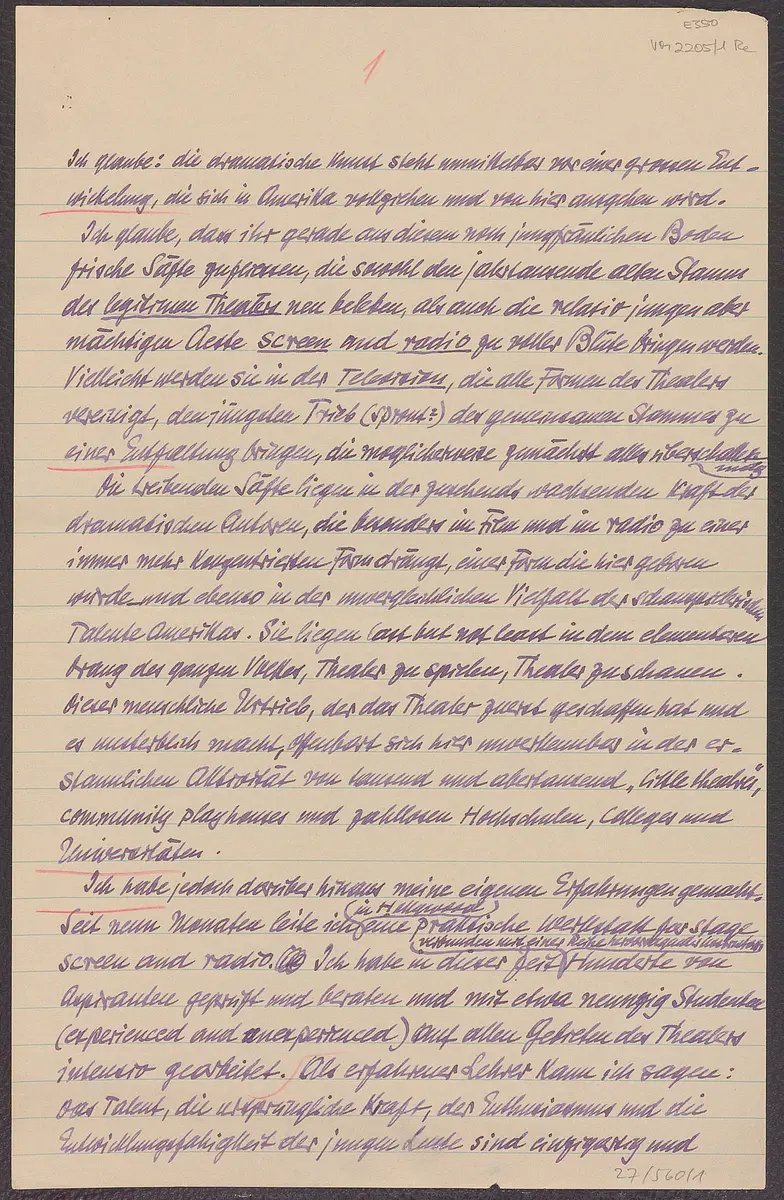 E350
VM 2205/1 Re
1
Ich glaube: die dramatische Kunst steht unmittelbar vor einer grossen Ent-
wickelung, die sich in Amerika vollziehen und von hier ausgehen wird.
Ich glaube, dass ihr gerade aus diesem noch jungfräulichen Boden
frische Säfte zufliessen, die sowohl den jahrtausende alten Stamm
des legitimen Theaters neu beleben, als auch die relativ jungen aber
mächtigen Aeste screen und radio zu voller Blüte bringen werden.
Vielleicht werden sie in der Television, die alle Formen des Theaters
vereinigt, den jüngsten Trieb (sprout?) des gemeinsamen Stammes zu
einer Entfaltung bringen, die möglicherweise zunächst alles überschatten
mag
Die treibenden Säfte liegen in der zusehends wachsenden Kraft der
dramatischen Autoren, die besonders im Film und im radio zu einer
immer mehr konzentrierten Form drängt, einer Form die hier geboren
wurde und ebenso in der unvergleichlichen Vielfalt der schauspielerischen
Talente Amerikas. Sie liegen last but not least in dem elementaren
Drang des ganzen Volkes, Theater zu spielen, Theater zu schauen.
Dieser menschliche Urtrieb, der das Theater zuerst geschaffen hat und
es unsterblich macht, offenbart sich hier unverkennbar in der er-
staunlichen Aktivität von tausend und abertausend „little theatres",
community playhouses und zahllosen Hochschulen, Colleges und
Universitäten.
Ich habe jedoch darüber hinaus meine eigenen Erfahrungen gemacht.
Seit neun Monaten leite ich (in Hollywood) eine praktische Werkstatt for stage
screen and radio. (verbunden mit einer Reihe hervorragender) Ich habe in dieser Zeit Hunderte von
Aspiranten geprüft und beraten und mit etwa neunzig Studenten
(experienced and unexperienced) auf allen Gebieten des Theaters
intensiv gearbeitet. Als erfahrener Lehrer kann ich sagen:
das Talent, die ursprüngliche Kraft, der Enthusiasmus und die
Entwicklungsfähigkeit der jungen Leute sind einzigartig und
27/560/1